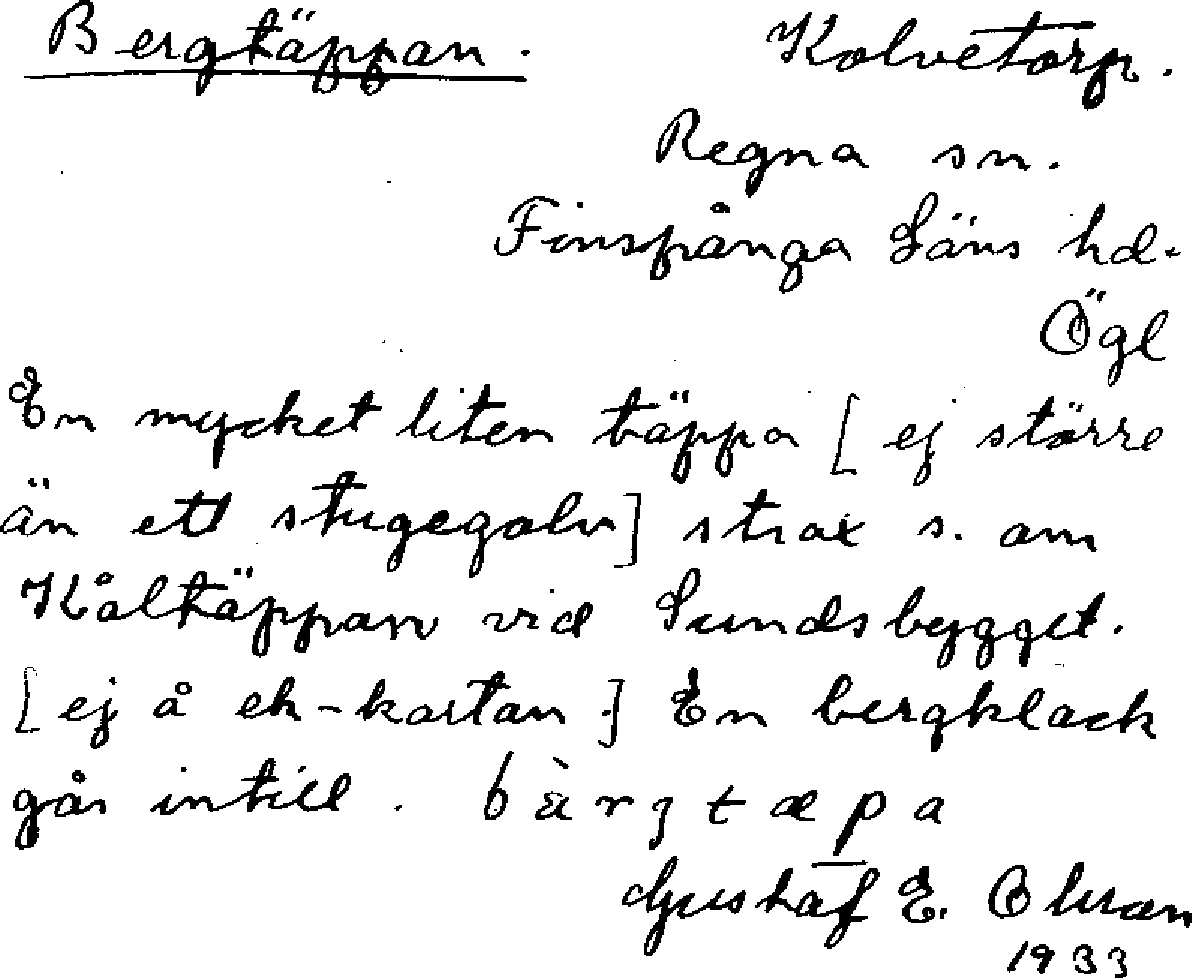 Bergtäppan. Kolvetorp.
Regna sn.
Finspånga Läns hd.
Ögl
En mycket liten täppa [ ej större
än ett stugegolv] strax s. om
Kåltäppan vid Sundsbygget.
[ ej å ek-kartan.] En bergklack
går intill. bàrʒtæpa
Gustaf E. Olsson
1933